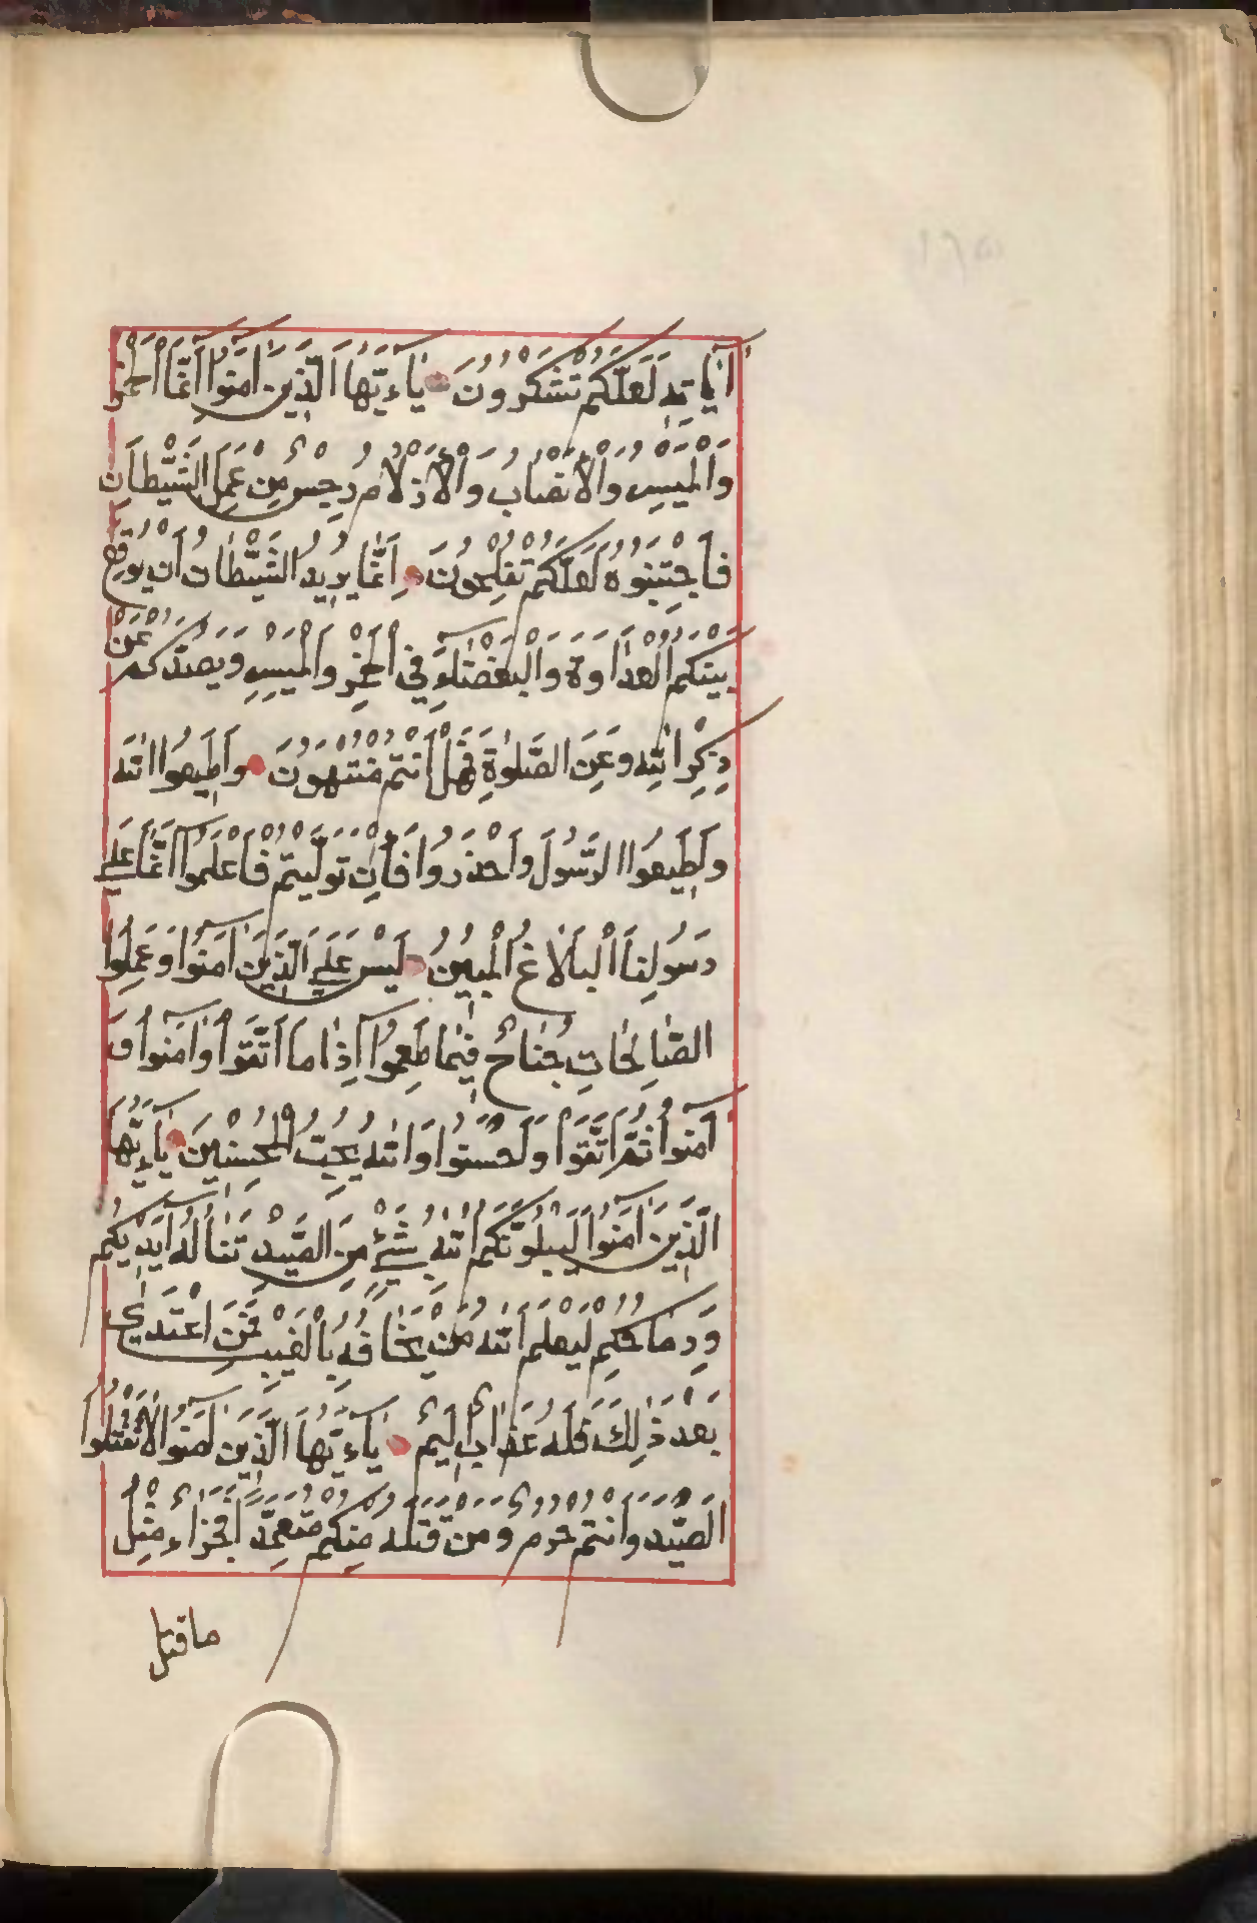 اٰيَاتِهِ لَعَلَّكُمْ تَشْكُرُونَ يَاءَيُّهَا الَّذِينَ اٰمَنُوا اِنَّمَا الْخَمْرُ
وَالْمَيْسِرُ وَالْاَنْصَابُ وَالْاَزْلَامُ رِجْسٌ مِنْ عَمَلِ الشَّيْطَانِ
فَاجْتَنِبُوهُ لَعَلَّكُمْ تُفْلِحُونَ اِنَّمَا يُرِيدُ الشَّيْطَانُ اَنْ يُوقِعَ
بَيْنَكُمُ الْعَدَاوَةَ وَالْبَغْضَاءَ فِي الْخَمْرِ وَالْمَيْسِرِ وَيَصُدَّكُمْ عَنْ
ذِكْرِ اللّٰهِ وَعَنِ الصَّلٰوةِ فَهَلْ اَنْتُمْ مُنْتَهُونَ وَاَطِيعُوا اللّٰهَ
وَاَطِيعُوا الرَّسُولَ وَاحْذَرُوا فَاِنْ تَوَلَّيْتُمْ فَاعْلَمُوا اَنَّمَا عَلٰى
رَسُولِنَا الْبَلَاغُ الْمُبِينُ لَيْسَ عَلَى الَّذِينَ اٰمَنُوا وَعَمِلُوا
الصَّالِحَاتِ جُنَاحٌ فِيمَا طَعِمُوا اِذَا مَا اتَّقَوْا وَاٰمَنُوا وَ
اٰمَنُوا ثُمَّ اتَّقَوْا وَاَحْسَنُوا وَاللّٰهُ يُحِبُّ الْمُحْسِنِينَ يَاءَيُّهَا
الَّذِينَ اٰمَنُوا لَيَبْلُوَنَّكُمُ اللّٰهُ بِشَيْءٍ مِنَ الصَّيْدِ تَنَالُهُ اَيْدِيكُمْ
وَرِمَاحُكُمْ لِيَعْلَمَ اللّٰهُ مَنْ يَخَافُهُ بِالْغَيْبِ فَمَنِ اعْتَدٰى
بَعْدَ ذٰلِكَ فَلَهُ عَذَابٌ اَلِيمٌ يَاءَيُّهَا الَّذِينَ اٰمَنُوا لَا تَقْتُلُوا
الصَّيْدَ وَاَنْتُمْ حُرُمٌ وَمَنْ قَتَلَهُ مِنْكُمْ مُتَعَمِّدًا فَجَزَاءُ مِثْلِ
ما قتل